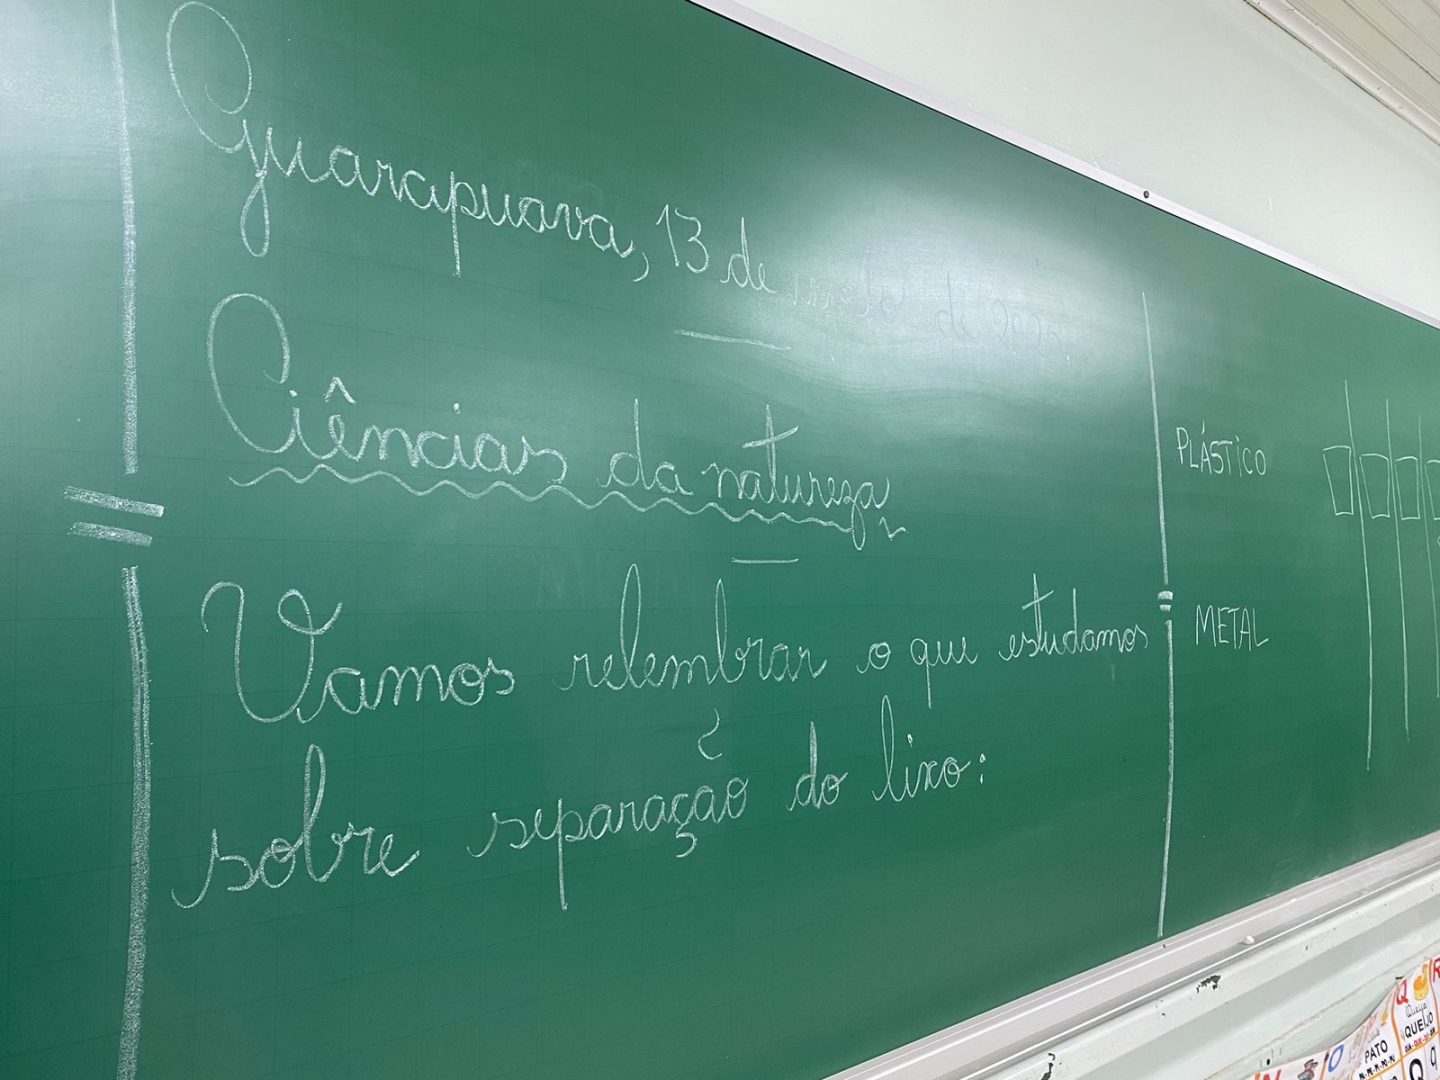 Guarapuava, 13 de de 202
Ciências da natureza
Vamos relembrar o que estudamos
sobre separação do lixo:
PLÁSTICO
METAL
PATO
Queijo
QUEIJO
Q q